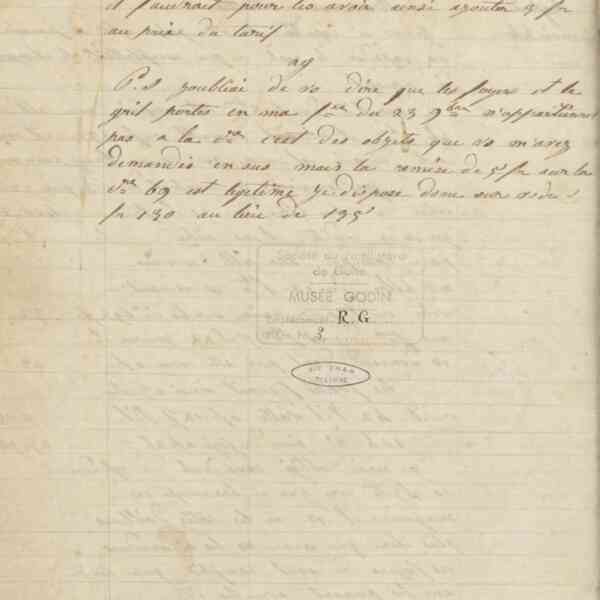 il faudrait pour les avoir ainsi ajouter 3 fr
au prix du tarif
ag
P.S. j'oubliai de vs dire que les foyers et le
gril portés en ma fre du 23 9bre n'appartiennent
pas a la c'est des objets que vs m'avez
demandés en sus mais la remise de 5 fr sur la
69 est legitime je dispose donc sur vous
fr 130 au lieu de 135
Société du Familistère
de Guise
MUSÉE GODIN
R. G
3